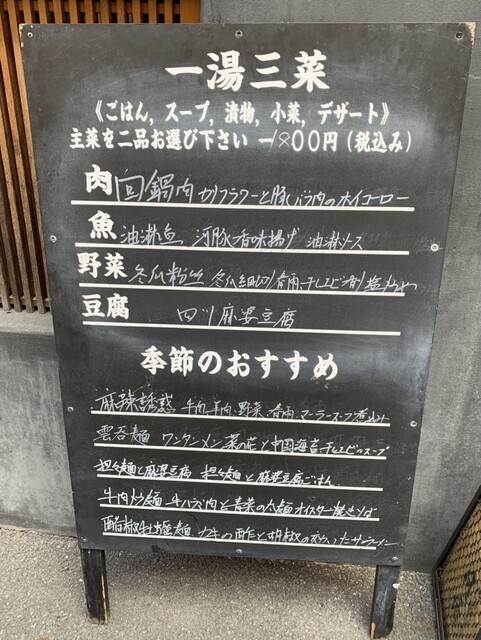 一湯三菜
《ごはん, スープ, 漬物, 小菜, デザート》
主菜を二品お選び下さい ー1800円（税込み）
肉 回鍋肉 カリフラワーと豚バラ肉のホイコーロー
魚 油淋魚 河豚香味揚げ 油淋ソース
野菜 冬瓜粉丝 冬瓜細切り春雨干しエビ煮り塩炒め
豆腐 四川麻婆豆腐
季節のおすすめ
麻辣誘惑 牛肉、羊肉、野菜、春雨、マーラースープ煮込み
雲呑麺 ワンタンメン 菜の花と中国海苔干しエビのスープ
担々麺と麻婆豆腐 担々麺と麻婆豆腐ごはん
牛肉炒麺 牛バラ肉と青菜の太麺オイスター焼きそば
酢椒牡蠣麺 カキの酢と胡椒の効いたサーラーメン